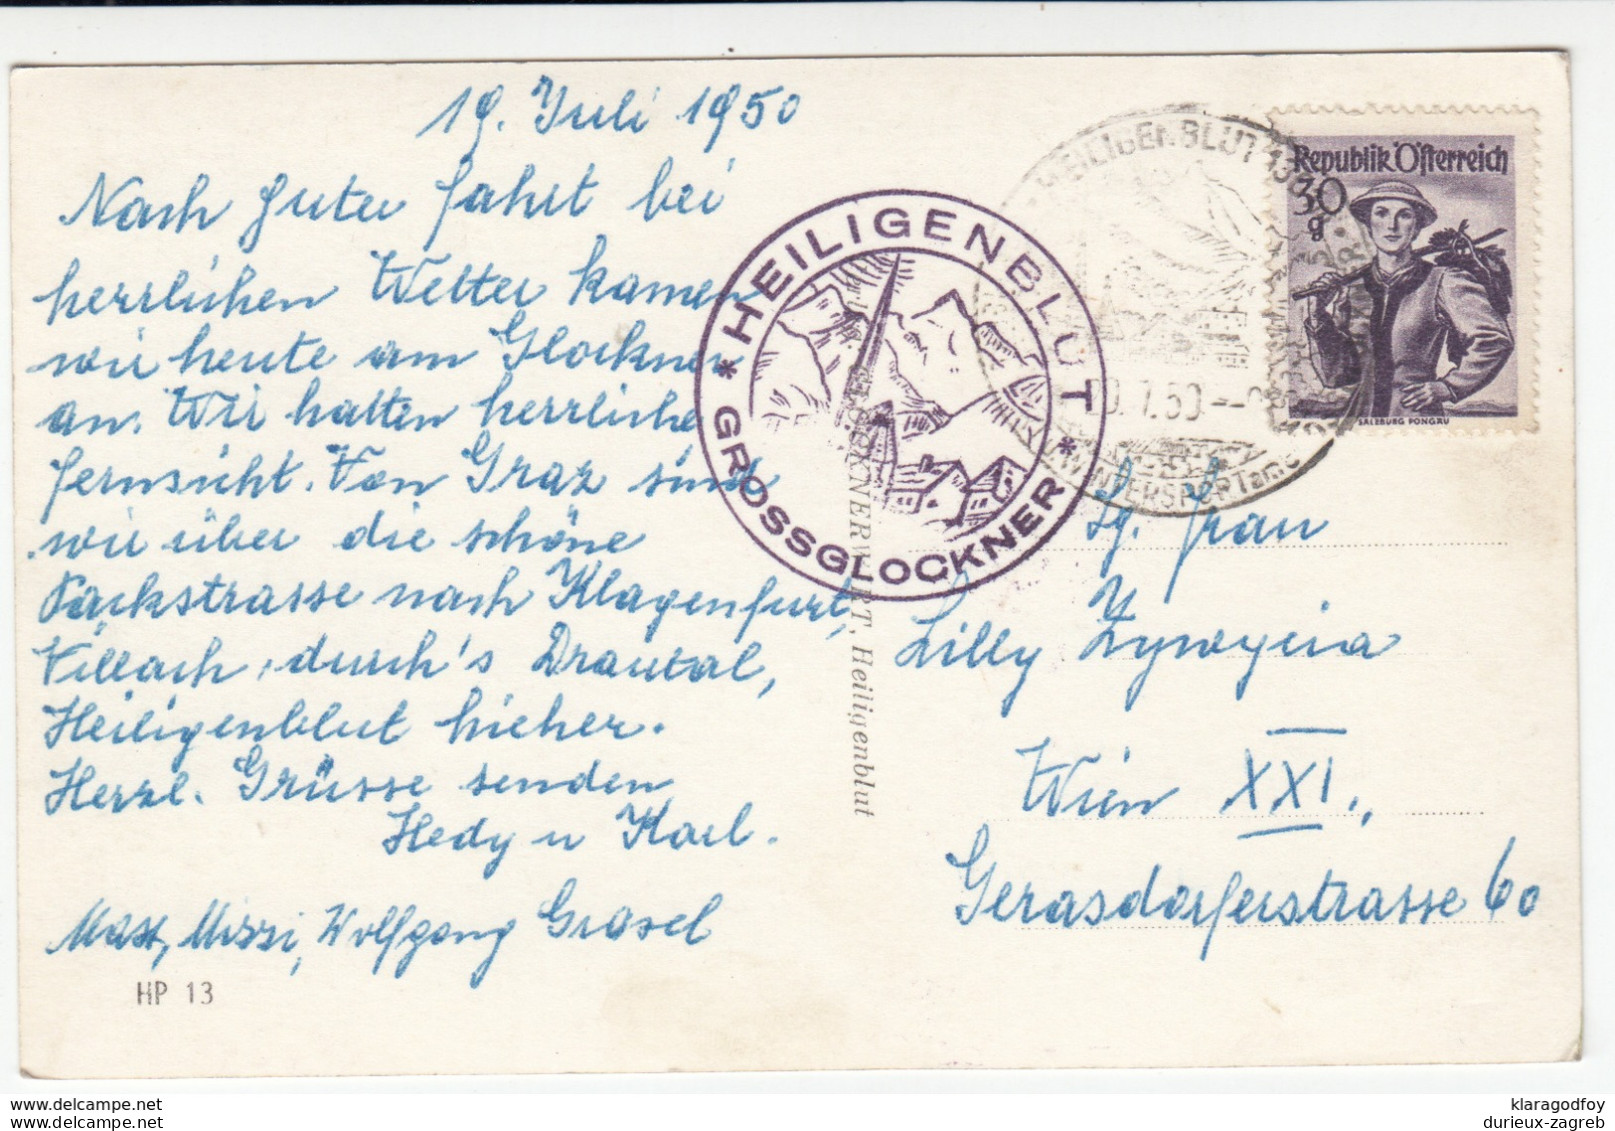 19. Juli 1950
Nach guter Fahrt bei
herrlichen Wetter kamen
wir heute am Glockner
an. Wir hatten herrliche
Fernsicht. Von Graz sind
wir über die schöne
Packstrasse nach Klagenfurt,
Villach, durch's Drautal,
Heiligenblut hieher.
Herzl. Grüsse senden
Hedy u Karl.
Mitzi, Wolfgang Grasel
HP 13
GLOCKNERWIRT, Heiligenblut
* HEILIGENBLUT *
GROSSGLOCKNER
HEILIGENBLUT 130
7.50
WINTERSPORT
Republik Österreich
30
g
SALZBURG PONGAU
Frau
Lilly
Wien XXI.,
Gerasdorferstrasse 60
klaragodfoy
durieux-zagreb
klaragodfoy
durieux-zagreb